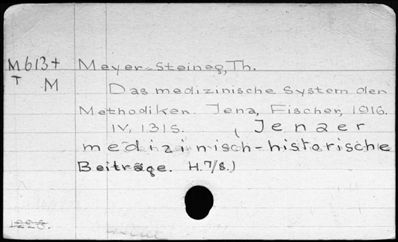 M613+ Meyer-Steineg, Th.
T M
Das medizinische System der
Methodiker. Jena, Fischer, 1916.
IV, 131S. (Jenaer
medizinisch-historische
Beiträge. H.7/8.)